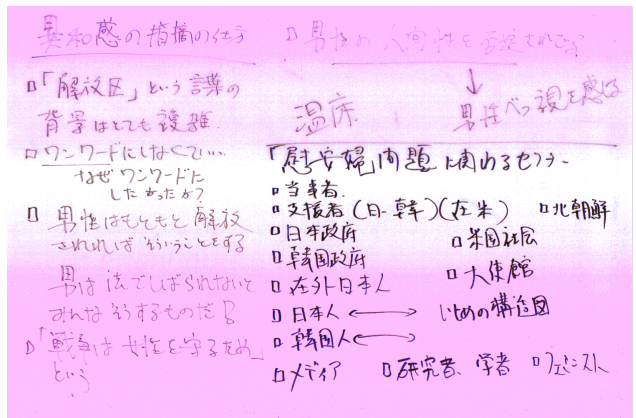 異和感の指摘の仕方
「解放区」という言葉の
背景はとても複雑.
ワンワードにしなくていい..
なぜワンワードに
したかったか？
男性はもともと解放
されればそういうことをする
男は法でしばられないと
みんなそうするものだ!
「戦争は女性を守るため」
という
男性の人間性を否定されている
↓
温床 男性ベッ視を感じる
「慰安婦」問題に関わるセクター
当事者.
支援者(日-韓)(在米) 北朝鮮
日本政府 米国社会
韓国政府 大使館
在外日本人
日本人 ←→ いじめの構造図
韓国人 ←→
メディア 研究者、学者 フェミニスト